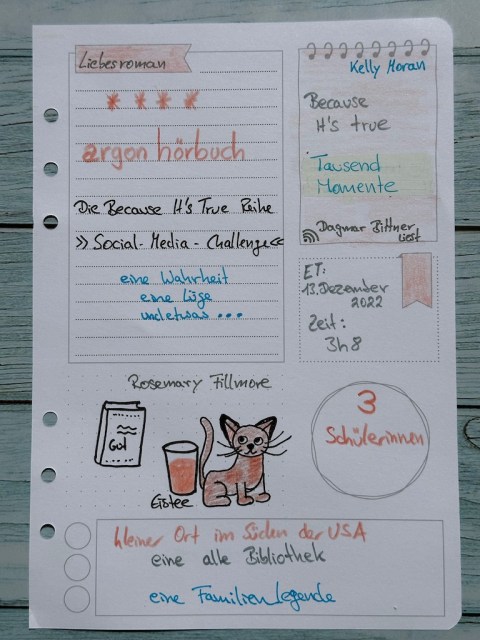 Liebesroman
* * * *
argon hörbuch
Die Because It's True Reihe
» Social-Media-Challenge «
eine Wahrheit
eine Lüge
und etwas ...
Kelly Moran
Because
It's true
Tausend
Momente
Dagmar Bittner
liest
ET:
13. Dezember
2022
Zeit:
3h 8
Rosemary Fillmore
Gut
Eistee
3
Schülerinnen
kleiner Ort im Süden der USA
eine alte Bibliothek
eine Familienlegende